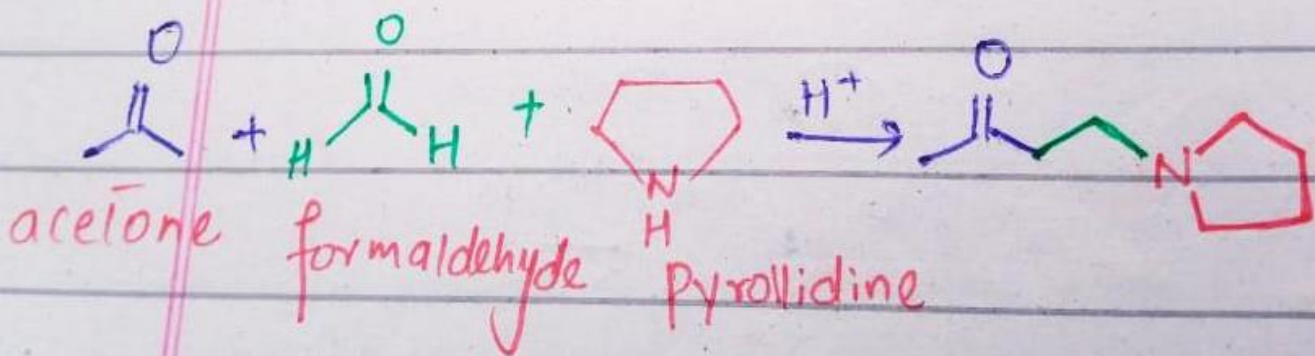 O O O
+ H H + N H H+ → N
acetone formaldehyde pyrollidine